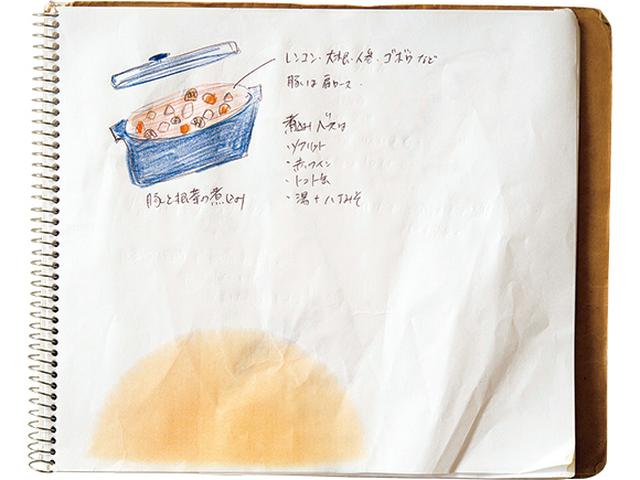 レンコン・大根・人参・ゴボウなど
豚は肩ロース.
煮込みベースは
・ソフリット
・赤ワイン
・トマト缶
・湯+八丁みそ
豚と根菜の煮込み